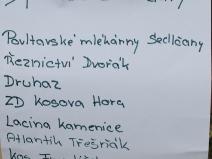 Povltavské mlékárny Sedlčany
Řeznictví Dvořák
Druhaz
ZD Kosova Hora
Lacina Kamenice
Atlantik Třešňák